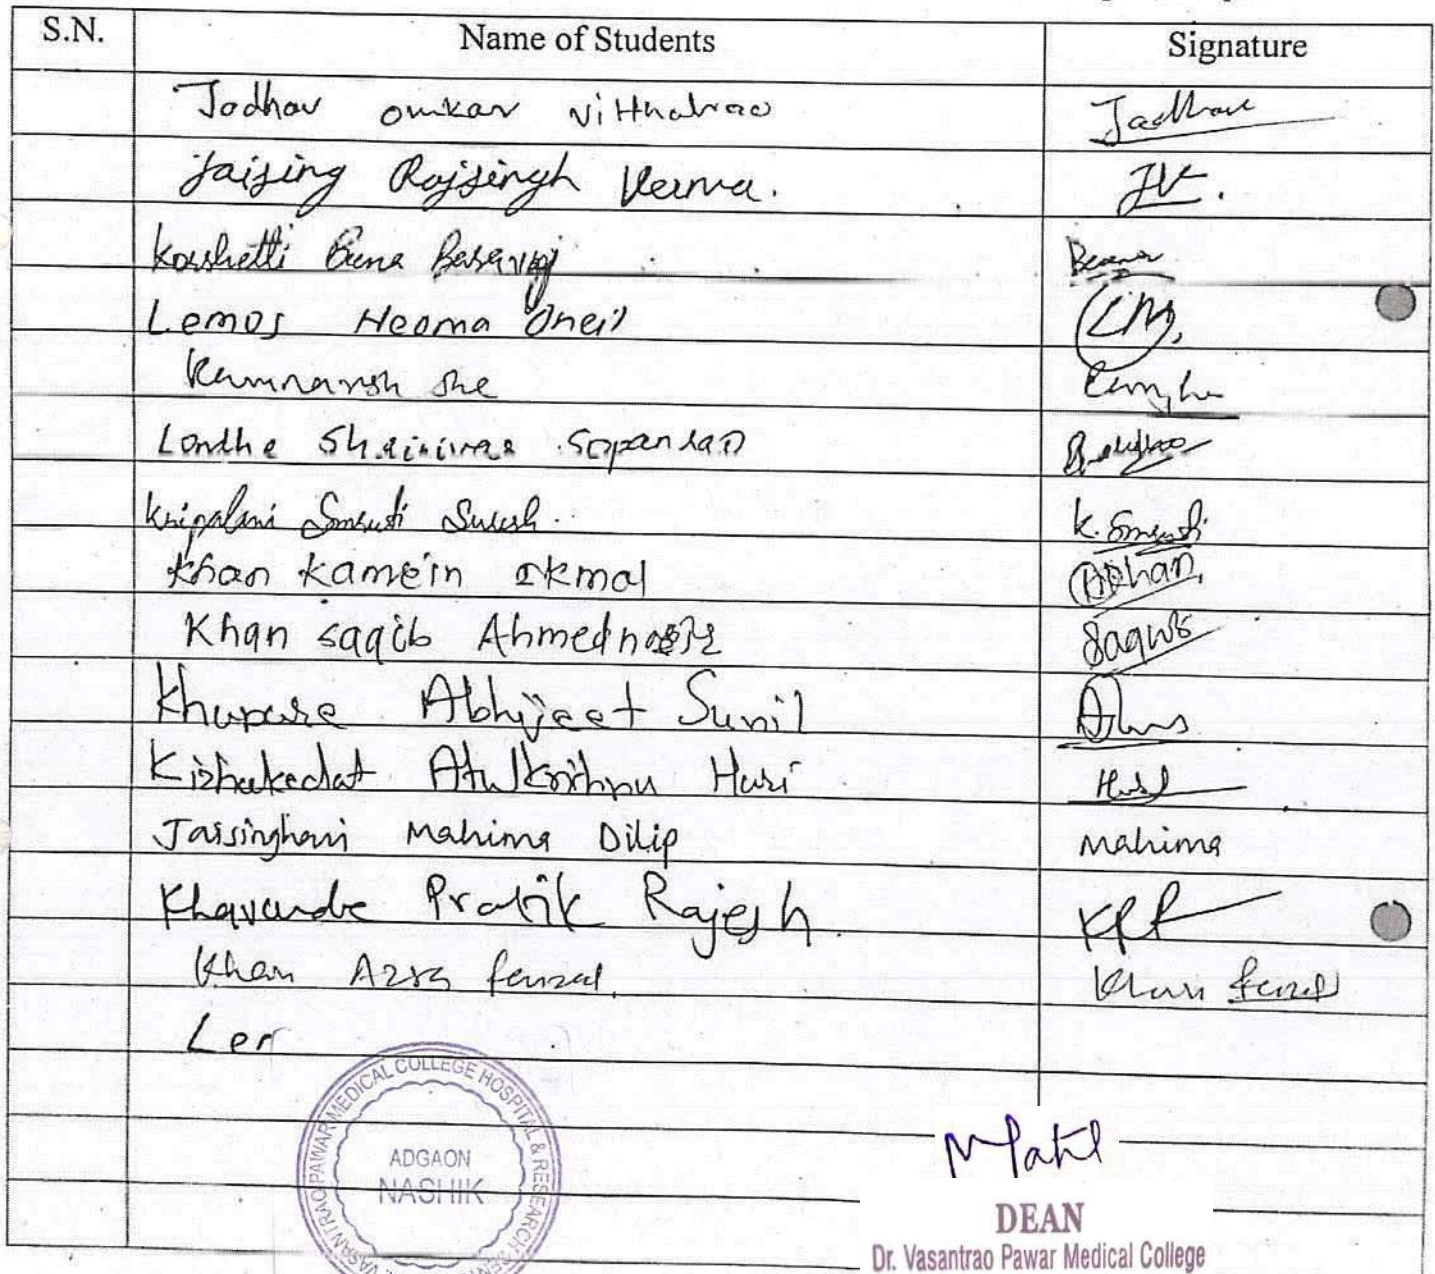 S.N. Name of Students Signature
Jadhav Omkar Vitthalrao Jadhav
Jaising Rajsingh Verma. JV.
Karshetti Beena Basavraj Beena
Lemos Neoma Oneil LM,
Londhe Shrinivas Sopanrao
Kripalani Smruti Suresh. K. Smruti
Khan Kamein Ikmal
Khan Saqib Ahmednasir Saqib
Khupase Abhijeet Sunil
Kizhakedat Atulkrishna Hari Hari
Jaisinghani Mahima Dilip Mahima
Khavande Pratik Rajesh. KPR
Khan Azra Fenzal. Khan Fenzal
Ler
VASANTRAO PAWAR MEDICAL COLLEGE HOSPITAL & RESEARCH
ADGAON
NASHIK
MPatil
DEAN
Dr. Vasantrao Pawar Medical College